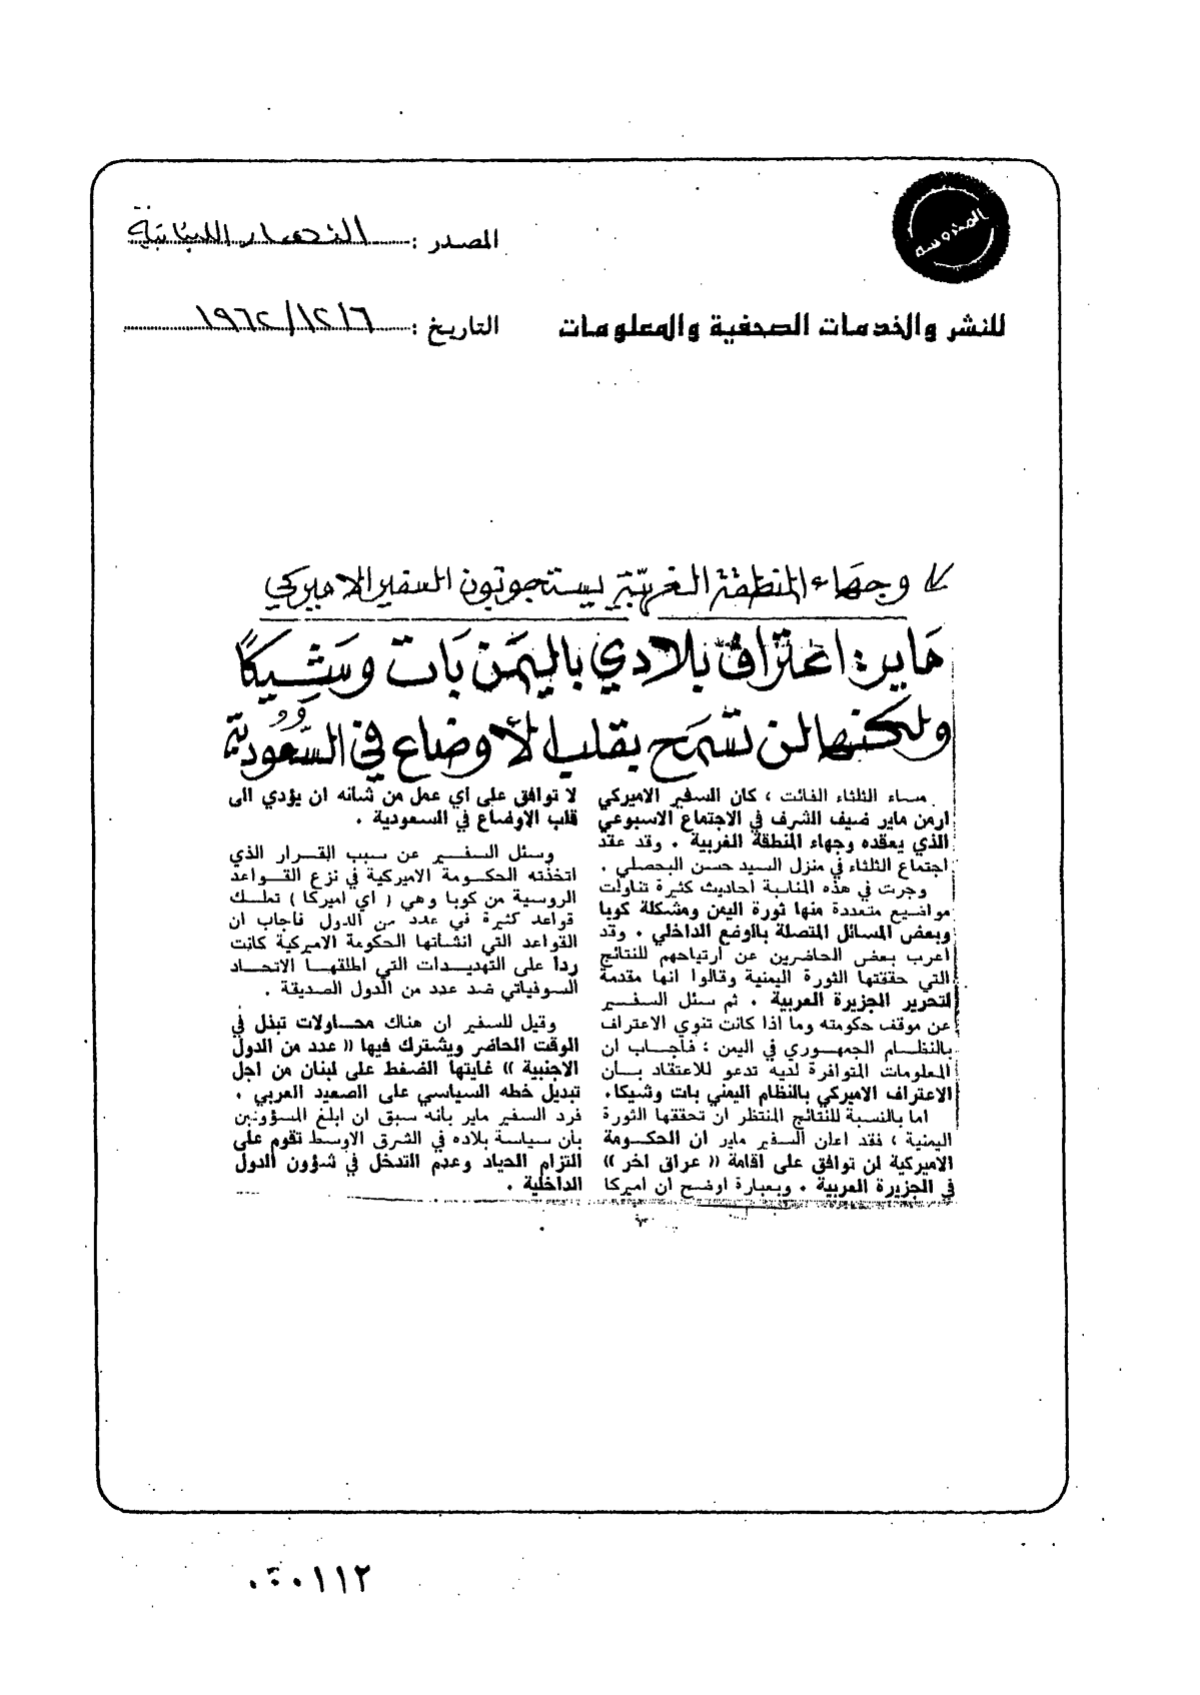 المحروسة
المصدر : النهار اللبنانية
للنشر والخدمات الصحفية والمعلومات
التاريخ : ١٩٦٢/١٢/٦
وجهاء المنطقة الغربية يستجوبون السفير الاميركي
ماير: اعتراف بلادي باليمن بات وشيكًا
ولكنها لن تسمح بقلب الأوضاع في السعودية
مساء الثلثاء الفائت ، كان السفير الاميركي
ارمن ماير ضيف الشرف في الاجتماع الاسبوعي
الذي يعقده وجهاء المنطقة الغربية . وقد عقد
اجتماع الثلثاء في منزل السيد حسن البحصلي .
وجرت في هذه المناسبة احاديث كثيرة تناولت
مواضيع متعددة منها ثورة اليمن ومشكلة كوبا
وبعض المسائل المتصلة بالوضع الداخلي . وقد
اعرب بعض الحاضرين عن ارتياحهم للنتائج
التي حققتها الثورة اليمنية وقالوا انها مقدمة
لتحرير الجزيرة العربية . ثم سئل السفير
عن موقف حكومته وما اذا كانت تنوي الاعتراف
بالنظام الجمهوري في اليمن ؛ فأجاب ان
المعلومات المتوافرة لديه تدعو للاعتقاد بان
الاعتراف الاميركي بالنظام اليمني بات وشيكا.
اما بالنسبة للنتائج المنتظر ان تحققها الثورة
اليمنية ، فقد اعلن السفير ماير ان الحكومة
الاميركية لن توافق على اقامة « عراق اخر »
في الجزيرة العربية . وبعبارة اوضح ان اميركا
لا توافق على اي عمل من شانه ان يؤدي الى
قلب الاوضاع في السعودية .
وسئل السفير عن سبب القرار الذي
اتخذته الحكومة الاميركية في نزع القواعد
الروسية من كوبا وهي ( اي اميركا ) تملك
قواعد كثيرة في عدد من الدول فأجاب ان
القواعد التي انشأتها الحكومة الاميركية كانت
ردا على التهديدات التي اطلقها الاتحاد
السوفياتي ضد عدد من الدول الصديقة .
وقيل للسفير ان هناك محاولات تبذل في
الوقت الحاضر ويشترك فيها « عدد من الدول
الاجنبية » غايتها الضغط على لبنان من اجل
تبديل خطه السياسي على الصعيد العربي .
فرد السفير ماير بانه سبق ان ابلغ المسؤولين
بان سياسة بلاده في الشرق الاوسط تقوم على
التزام الحياد وعدم التدخل في شؤون الدول
الداخلية .
٠٠٠١١٢